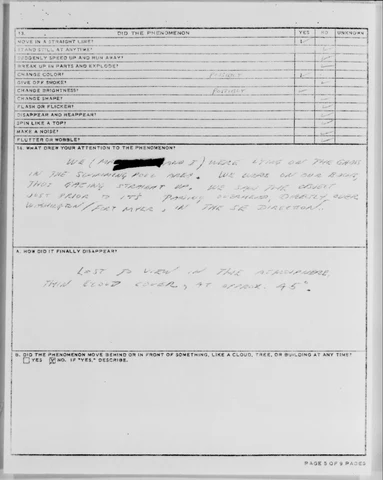 13. DID THE PHENOMENON YES NO UNKNOWN
MOVE IN A STRAIGHT LINE?
STAND STILL AT ANYTIME?
SUDDENLY SPEED UP AND RUN AWAY?
BREAK UP IN PARTS AND EXPLODE?
CHANGE COLOR?
GIVE OFF SMOKE?
CHANGE BRIGHTNESS?
CHANGE SHAPE?
FLASH OR FLICKER?
DISAPPEAR AND REAPPEAR?
SPIN LIKE A TOP?
MAKE A NOISE?
FLUTTER OR WOBBLE?
14. WHAT DREW YOUR ATTENTION TO THE PHENOMENON?
WE ( AND I) WERE LYING ON THE
IN THE SWIMMING POOL AREA. WE WERE ON OUR BACKS,
THUS GAZING STRAIGHT UP. WE SAW THE OBJECT
JUST PRIOR TO ITS OVERHEAD, SLIGHTLY OVER
IN THE SE DIRECTION.
A. HOW DID IT FINALLY DISAPPEAR?
LOST TO VIEW IN THE
THIN CLOUD COVER, AT APPROX. 45°.
B. DID THE PHENOMENON MOVE BEHIND OR IN FRONT OF SOMETHING, LIKE A CLOUD, TREE, OR BUILDING AT ANY TIME?
YES NO. IF "YES," DESCRIBE.
PAGE 5 OF 9 PAGES